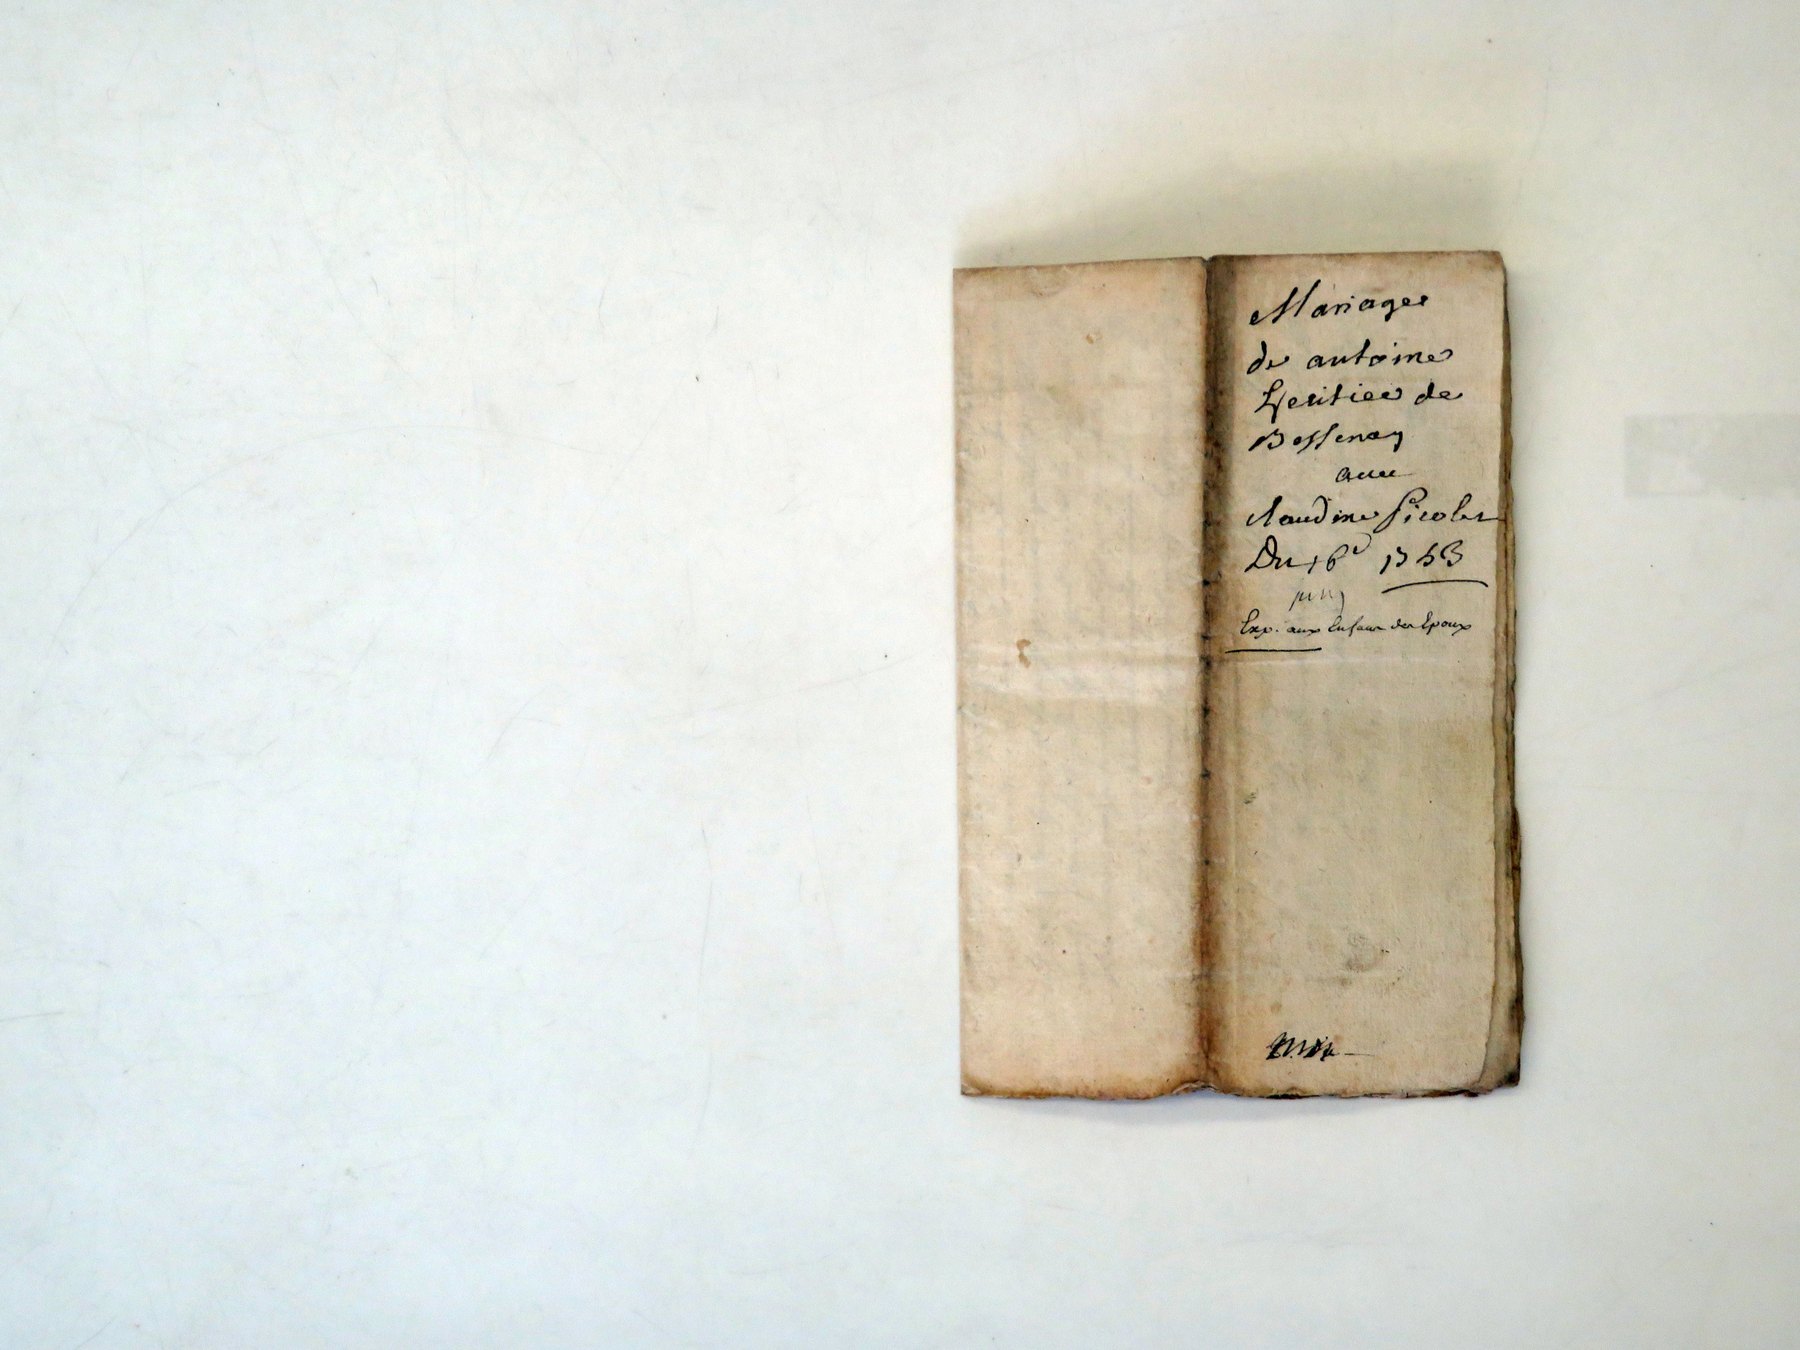 Mariage
de antoine
Lheritier de
Bessenay
avec
claudine
Du 16e 1753
juin
Exp. aux Enfans des Epoux